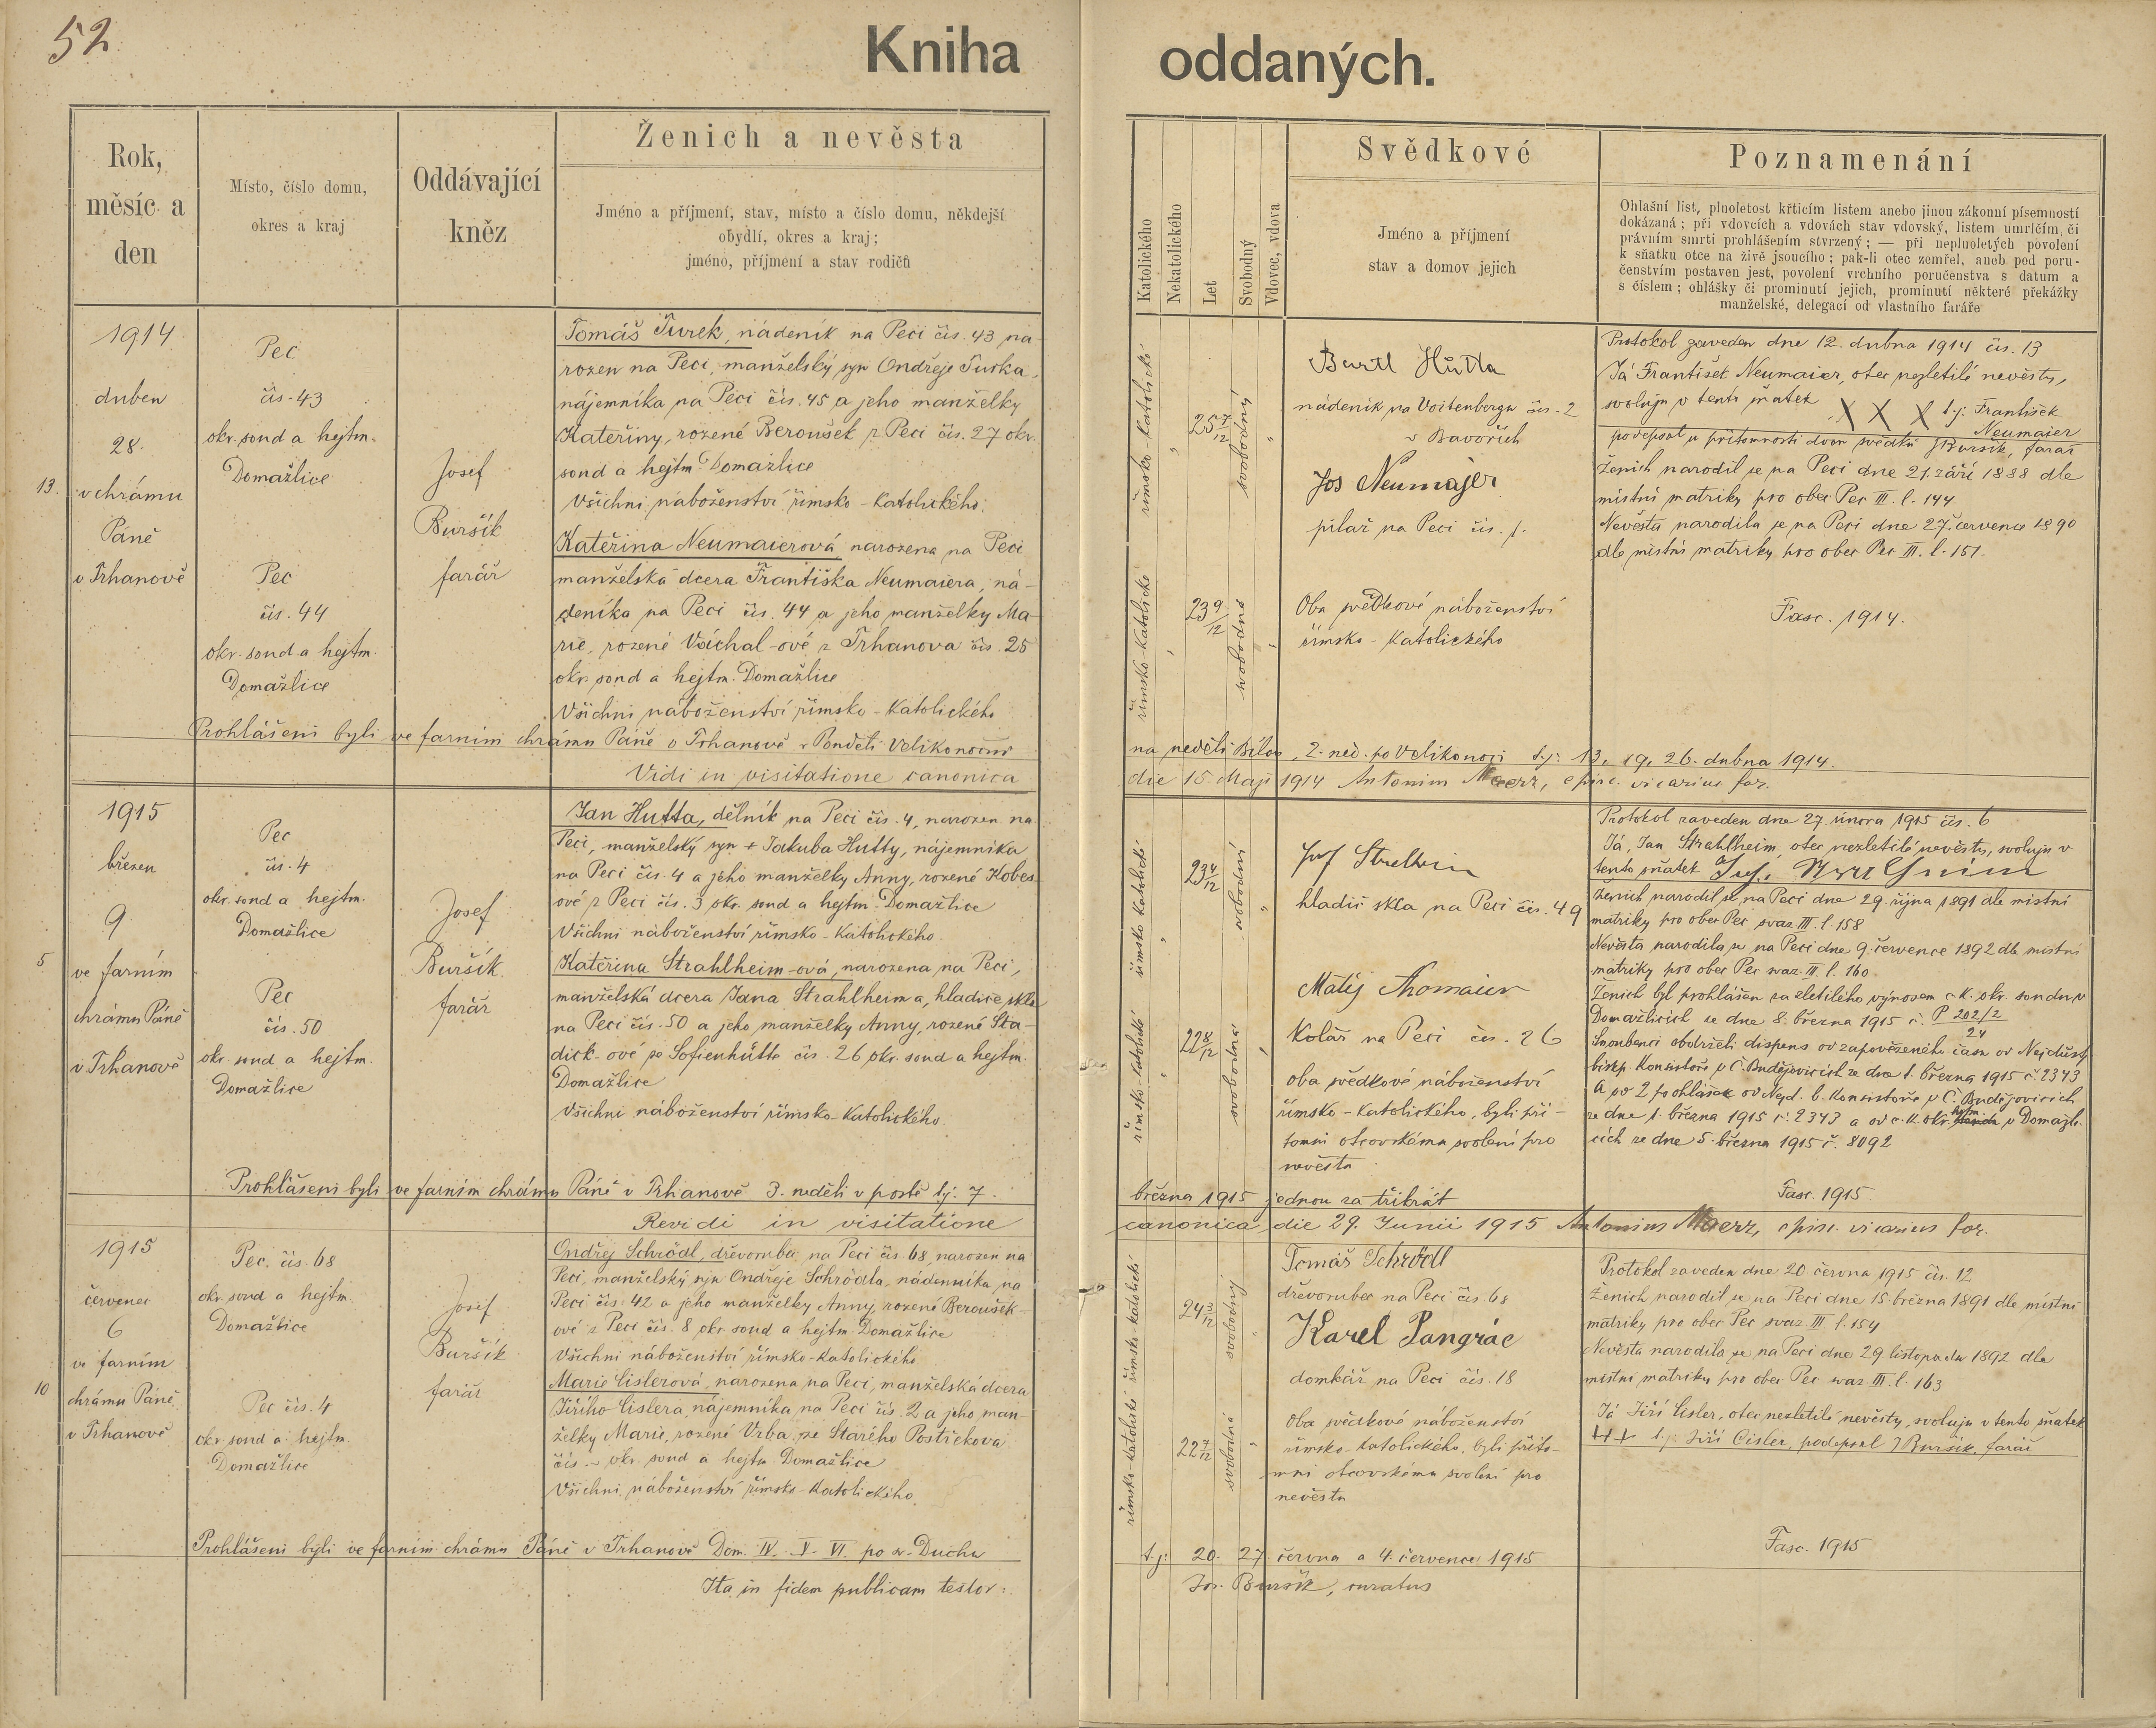 52
Kniha oddaných.
Rok,
měsíc a
den
Místo, číslo domu,
okres a kraj
Oddávající
kněz
Ženich a nevěsta
Jméno a příjmení, stav, místo a číslo domu, někdejší
obydlí, okres a kraj;
jméno, příjmení a stav rodičů
Katolického
Nekatolického
Let
Svobodný
Vdovec, vdova
Svědkové
Jméno a příjmení
stav a domov jejich
Poznamenání
Ohlašní list, plnoletost křticím listem anebo jinou zákonní písemností
dokázaná; při vdovcích a vdovách stav vdovský, listem úmrlčím, či
právním smrti prohlášením stvrzený; — při neplnoletých povolení
k sňatku otce na živě jsoucího; pak-li otec zemřel, aneb pod poru-
čenstvím postaven jest, povolení vrchního poručenstva s datum a
s číslem; ohlášky či prominutí jejich, prominutí některé překážky
manželské, delegací od vlastního faráře
13.
1914
duben
28.
v chrámu
Páně
v Trhanově
Pec
čís. 43
okr. soud a hejtm.
Domažlice
Pec
čís. 44
okr. soud a hejtm.
Domažlice
Josef
Buršík
farář
Tomáš Turek, nádeník na Peci čís. 43 na
rozen na Peci, manželský syn Ondřeje Turka,
nájemníka na Peci čís. 45 a jeho manželky
Kateřiny, rozené Beroušek z Peci čís. 27 okr.
soud a hejtm. Domažlice
Všichni náboženství římsko-katolického.
Kateřina Neumaierová, narozena na Peci
manželská dcera Františka Neumaiera, ná-
deníka na Peci čís. 44 a jeho manželky Ma-
rie, rozené Váchal-ové z Trhanova čís. 25
okr. soud a hejtm. Domažlice
Všichni náboženství římsko-katolického
římsko katolické
25 7/12
svobodný
římsko-katolické
23 9/12
svobodná
Bartl Hutta
nádeník na Voitenbergu čís. 2
v Bavořích
Jos Neumajer
pilař na Peci čís. 1.
Oba svědkové náboženství
římsko-katolického
Protokol zaveden dne 12. dubna 1914 čís. 13
Já František Neumaier, otec nezletilé nevěsty,
svoluju v tento sňatek X X X t.j. František
Neumaier
podepsal u přítomnosti dvou svědků J Buršík, farář
Ženich narodil se na Peci dne 21. září 1888 dle
místní matriky pro obec Pec III. l. 144.
Nevěsta narodila se na Peci dne 27. července 1890
dle místní matriky pro obec Pec III. l. 151.
Fasc. 1914.
Prohlášeni byli ve farním chrámu Páně v Trhanově v Pondělí Velikonoční na neděli Bílou, 2. ned. po Velikonoci t.j: 13, 19, 26. dubna 1914.
Vidi in visitatione canonica die 15 Maji 1914 Antonin Maerz, episc. vicarius for.
5
1915
březen
9
ve farním
chrámu Páně
v Trhanově
Pec
čís. 4
okr. soud a hejtm.
Domažlice
Pec
čís. 50
okr. soud a hejtm.
Domažlice
Josef
Buršík
farář
Jan Hutta, dělník na Peci čís. 4, narozen na
Peci, manželský syn + Jakuba Hutty, nájemníka
na Peci čís. 4 a jeho manželky Anny, rozené Kobes-
ové z Peci čís. 3 okr. soud a hejtm. Domažlice
Všichni náboženství římsko-katolického.
Kateřina Strahlheim-ová, narozena na Peci,
manželská dcera Jana Strahlheima, hladiče skla
na Peci čís. 50 a jeho manželky Anny, rozené Sta-
dick-ové ze Sofienhütte čís. 26 okr. soud a hejtm.
Domažlice
Všichni náboženství římsko-katolického.
římsko katolické
23 4/12
svobodní
římsko-katolické
22 8/12
svobodná
hladič skla na Peci čís. 49
Matěj Thomaier
Kolář na Peci čís. 26
oba svědkové náboženství
římsko-katolického, byli pří-
tomni otcovskému svolení pro
nevěstu
Protokol zaveden dne 27. února 1915 čís. 6
Já, Jan Strahlheim, otec nezletilé nevěsty, svoluju v
tento sňatek
Ženich narodil se na Peci dne 29. října 1891 dle místní
matriky pro obec Pec svaz. III. l. 158
Nevěsta narodila se na Peci dne 9. července 1892 dle místní
matriky pro obec Pec svaz. III. l. 160
Ženich byl prohlášen za zletilého výnosem c. k. okr. soudu v
Domažlicích ze dne 8. března 1915 č. P 202/2
24
Snoubenci obdrželi dispens od zapovězeného času od Nejdůst.
biskp. konsistoře v Č. Budějovicích ze dne 1. března 1915 č. 2343
A po 2 prohlášek od Nejd. b. konsistoře v Č. Budějovicích
ze dne 1. března 1915 č. 2343 a od c. k. okr. hejtm. v Domažli-
cích ze dne 5. března 1915 č. 8092
Fasc. 1915
Prohlášeni byli ve farním chrámu Páně v Trhanově 3. neděli v postě t.j. 7. března 1915 jednou za třikrát
Revidi in visitatione canonica, die 29. Junii 1915 Antonius Maerz, episc. vicarius for.
10
1915
červenec
6
ve farním
chrámu Páně
v Trhanově
Pec. čís. 68
okr. soud a hejtm.
Domažlice
Pec čís. 4
okr. soud a hejtm.
Domažlice
Josef
Buršík
farář
Ondřej Schrödl, dřevorubec na Peci čís. 68, narozen na
Peci, manželský syn Ondřeje Schrödla, nádenníka, na
Peci čís. 42 a jeho manželky Anny, rozené Beroušek-
ové z Peci čís. 8 okr. soud a hejtm. Domažlice
Všichni náboženství římsko-katolického
Marie Cislerová, narozena na Peci, manželská dcera
Jiřího Cislera, nájemníka na Peci čís. 2 a jeho man-
želky Marie, rozené Vrba ze Starého Postřekova
čís. ~ okr. soud a hejtm. Domažlice
Všichni náboženství římsko-katolického.
římsko katolické
24 3/12
svobodný
římsko-katolické
22 7/12
svobodná
Tomáš Schrödl
dřevorubec na Peci čís. 68
Karel Pangrác
domkář na Peci čís. 18
Oba svědkové náboženství
římsko-katolického, byli příto-
mni otcovskému svolení pro
nevěstu
Protokol zaveden dne 20. června 1915 čís. 12
Ženich narodil se na Peci dne 15. března 1891 dle místní
matriky pro obec Pec svaz. III. l. 154
Nevěsta narodila se na Peci dne 29. listopadu 1892 dle
místní matriky pro obec Pec svaz. III. l. 163
Já Jiří Cisler, otec nezletilé nevěsty, svoluju v tento sňatek
+++ t.j. Jiří Cisler, podepsal J Buršík, farář
Fasc. 1915
Prohlášeni byli ve farním chrámu Páně v Trhanově Dom. IV. V. VI. po sv. Duchu t.j: 20. 27. června a 4. července 1915
Ita in fidem publicam testor: Jos. Buršík, curatus